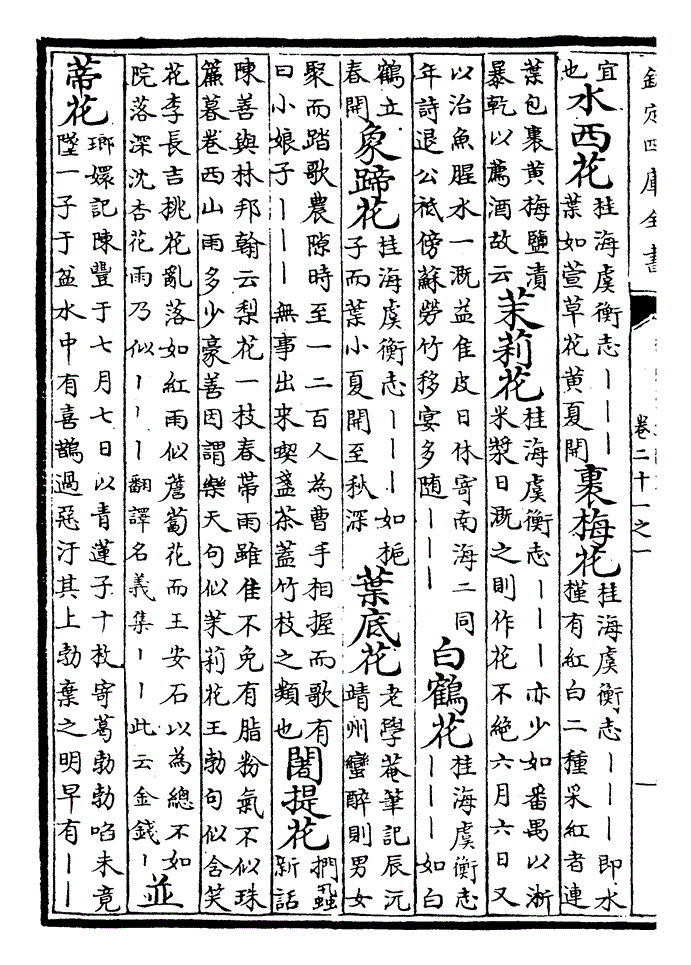 欽定四庫全書
卷二十一之一
宜也水西花桂海虞衡志｜｜｜葉如萱草花黃夏開裹梅花桂海虞衡志｜｜｜即水槿有紅白二種采紅者連
葉包裹黃梅鹽漬暴乾以薦酒故云茉莉花桂海虞衡志｜｜｜亦少如番禺以淅米漿日溉之則作花不絶六月六日又
以治魚腥水一溉益佳皮日休寄南海二同年詩退公祗傍蘇勞竹移宴多隨｜｜｜白鶴花桂海虞衡志｜｜｜如白
鶴立春開象蹄花桂海虞衡志｜｜｜如梔子而葉小夏開至秋深葉底花老學菴筆記辰沅靖州蠻醉則男女
聚而踏歌農隙時至一二百人為曹手相握而歌有曰小娘子｜｜｜無事出来喫盞茶蓋竹枝之類也闍提花捫蝨新話
陳善與林邦翰云梨花一枝春帶雨雖佳不免有脂粉氣不似珠簾暮巻西山雨多少豪善因謂樂天句似茉莉花王勃句似含笑
花李長吉桃花亂落如紅雨似薝蔔花而王安石以為總不如院落深沈杏花雨乃似｜｜｜翻譯名義集｜｜此云金錢｜並
蒂花瑯嬛記陳豐于七月七日以青蓮子十枚寄葛勃勃啗未竟墜一子于盆水中有喜鵲過惡汙其上勃棄之明早有｜｜